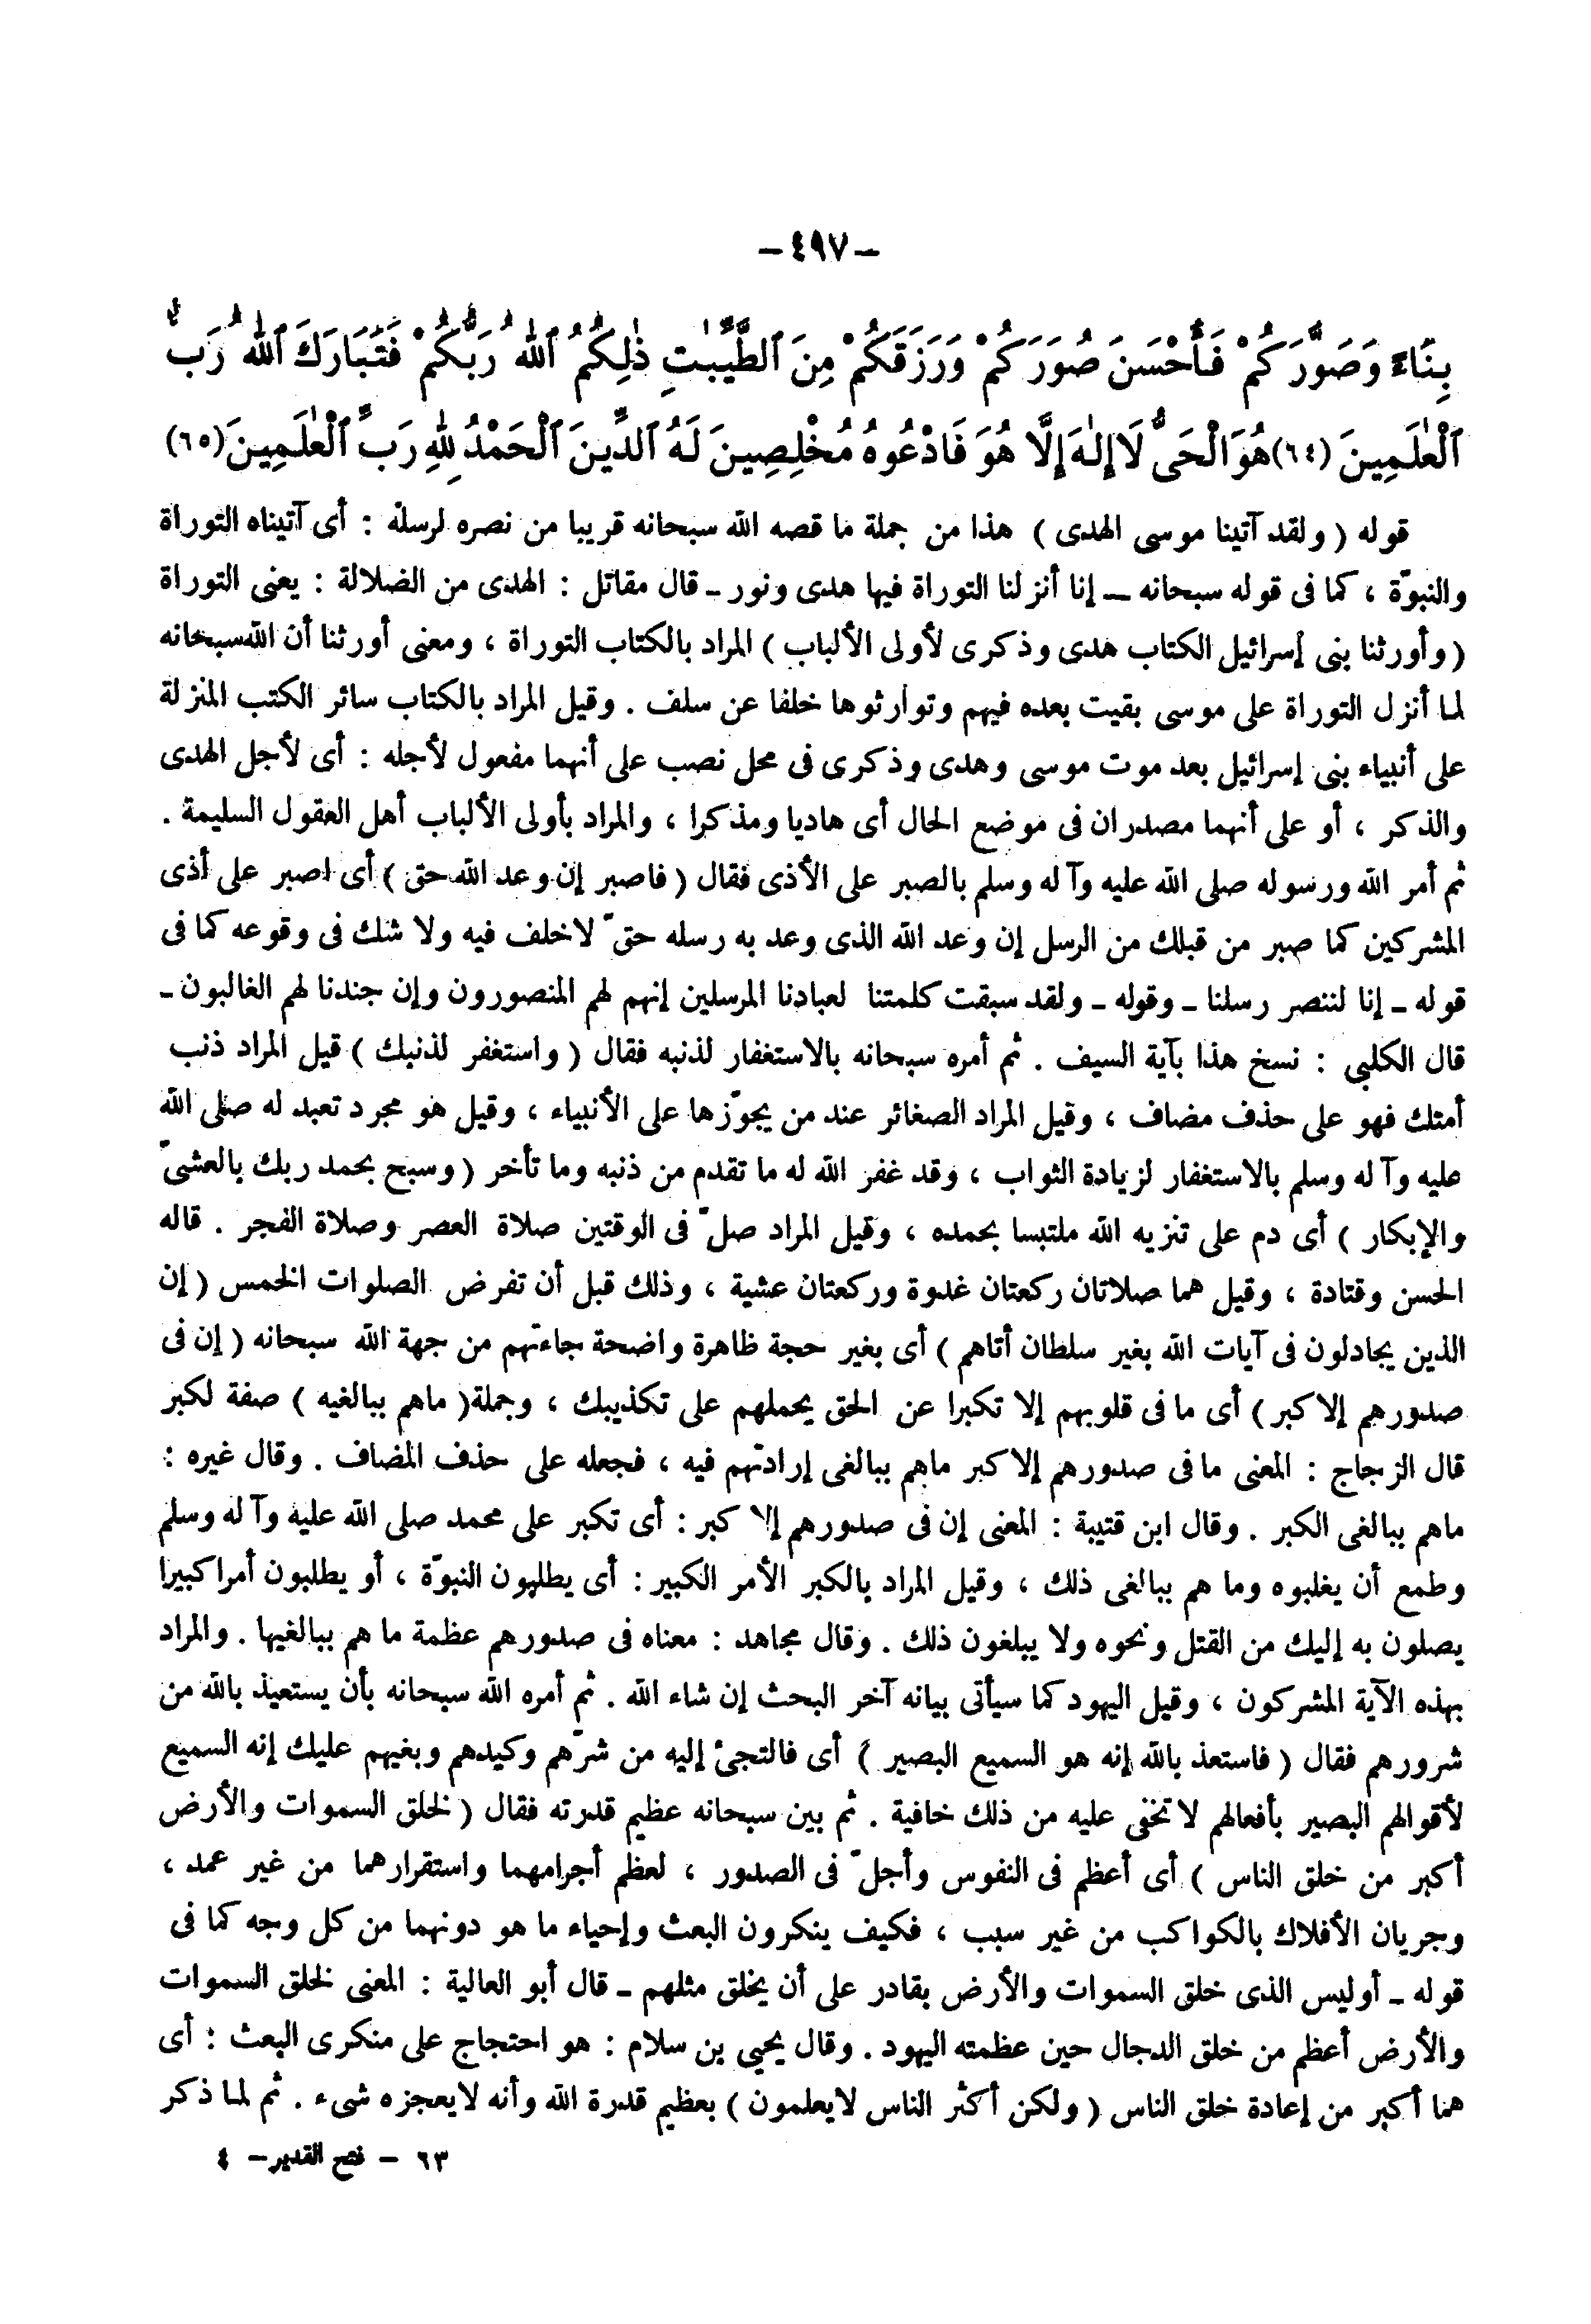 - ٤٩٧ -
بِنَاءً وَصَوَّرَكُمْ فَأَحْسَنَ صُوَرَكُمْ وَرَزَقَكُمْ مِنَ ٱلطَّيِّبَٰتِ ذَٰلِكُمُ ٱللهُ رَبُّكُمْ فَتَبَارَكَ ٱللهُ رَبُّ
ٱلْعَٰلَمِينَ (٦٤) هُوَ ٱلْحَىُّ لَا إِلَٰهَ إِلَّا هُوَ فَادْعُوهُ مُخْلِصِينَ لَهُ ٱلدِّينَ ٱلْحَمْدُ لِلهِ رَبِّ ٱلْعَٰلَمِينَ (٦٥)
قوله ( ولقد آتينا موسى الهدى ) هذا من جملة ما قصه الله سبحانه قريبا من نصره لرسله : أى آتيناه التوراة
والنبوّة ، كما فى قوله سبحانه ــ إنا أنزلنا التوراة فيها هدى ونور ــ قال مقاتل : الهدى من الضلالة : يعنى التوراة
( وأورثنا بنى إسرائيل الكتاب هدى وذكرى لأولى الألباب ) المراد بالكتاب التوراة ، ومعنى أورثنا أن الله سبحانه
لما أنزل التوراة على موسى بقيت بعده فيهم وتوارثوها خلفا عن سلف . وقيل المراد بالكتاب سائر الكتب المنزلة
على أنبياء بنى إسرائيل بعد موت موسى وهدى وذكرى فى محل نصب على أنهما مفعول لأجله : أى لأجل الهدى
والذكر ، أو على أنهما مصدران فى موضع الحال أى هاديا ومذكرا ، والمراد بأولى الألباب أهل العقول السليمة .
ثم أمر الله ورسوله صلى الله عليه وآله وسلم بالصبر على الأذى فقال ( فاصبر إن وعد الله حق ) أى اصبر على أذى
المشركين كما صبر من قبلك من الرسل إن وعد الله الذى وعد به رسله حقّ لا خلف فيه ولا شك فى وقوعه كما فى
قوله ــ إنا لننصر رسلنا ــ وقوله ــ ولقد سبقت كلمتنا لعبادنا المرسلين إنهم لهم المنصورون وإن جندنا لهم الغالبون ــ
قال الكلبى : نسخ هذا بآية السيف . ثم أمره سبحانه بالاستغفار لذنبه فقال ( واستغفر لذنبك ) قيل المراد ذنب
أمتك فهو على حذف مضاف ، وقيل المراد الصغائر عند من يجوّزها على الأنبياء ، وقيل هو مجرد تعبد له صلى الله
عليه وآله وسلم بالاستغفار لزيادة الثواب ، وقد غفر الله له ما تقدم من ذنبه وما تأخر ( وسبح بحمد ربك بالعشىّ
والإبكار ) أى دم على تنزيه الله ملتبسا بحمده ، وقيل المراد صلّ فى الوقتين صلاة العصر وصلاة الفجر . قاله
الحسن وقتادة ، وقيل هما صلاتان ركعتان غدوة وركعتان عشية ، وذلك قبل أن تفرض الصلوات الخمس ( إن
الذين يجادلون فى آيات الله بغير سلطان أتاهم ) أى بغير حجة ظاهرة واضحة جاءتهم من جهة الله سبحانه ( إن فى
صدورهم إلا كبر ) أى ما فى قلوبهم إلا تكبرا عن الحق يحملهم على تكذيبك ، وجملة ( ماهم ببالغيه ) صفة لكبر
قال الزجاج : المعنى ما فى صدورهم إلا كبر ماهم ببالغى إرادتهم فيه ، فجعله على حذف المضاف . وقال غيره :
ماهم ببالغى الكبر . وقال ابن قتيبة : المعنى إن فى صدورهم إلا كبر : أى تكبر على محمد صلى الله عليه وآله وسلم
وطمع أن يغلبوه وما هم ببالغى ذلك ، وقيل المراد بالكبر الأمر الكبير : أى يطلبون النبوّة ، أو يطلبون أمرا كبيرا
يصلون به إليك من القتل ونحوه ولا يبلغون ذلك . وقال مجاهد : معناه فى صدورهم عظمة ما هم ببالغيها . والمراد
بهذه الآية المشركون ، وقيل اليهود كما سيأتى بيانه آخر البحث إن شاء الله . ثم أمره الله سبحانه بأن يستعيذ بالله من
شرورهم فقال ( فاستعذ بالله إنه هو السميع البصير ) أى فالتجئ إليه من شرّهم وكيدهم وبغيهم عليك إنه السميع
لأقوالهم البصير بأفعالهم لا تخفى عليه من ذلك خافية . ثم بين سبحانه عظيم قدرته فقال ( لخلق السموات والأرض
أكبر من خلق الناس ) أى أعظم فى النفوس وأجلّ فى الصدور ، لعظم أجرامهما واستقرارهما من غير عمد ،
وجريان الأفلاك بالكواكب من غير سبب ، فكيف ينكرون البعث وإحياء ما هو دونهما من كل وجه كما فى
قوله ــ أوليس الذى خلق السموات والأرض بقادر على أن يخلق مثلهم ــ قال أبو العالية : المعنى لخلق السموات
والأرض أعظم من خلق الدجال حين عظمته اليهود . وقال يحيى بن سلام : هو احتجاج على منكرى البعث : أى
هما أكبر من إعادة خلق الناس ( ولكن أكثر الناس لايعلمون ) بعظيم قدرة الله وأنه لايعجزه شىء . ثم لما ذكر
٦٣ - فتح القدير - ٤